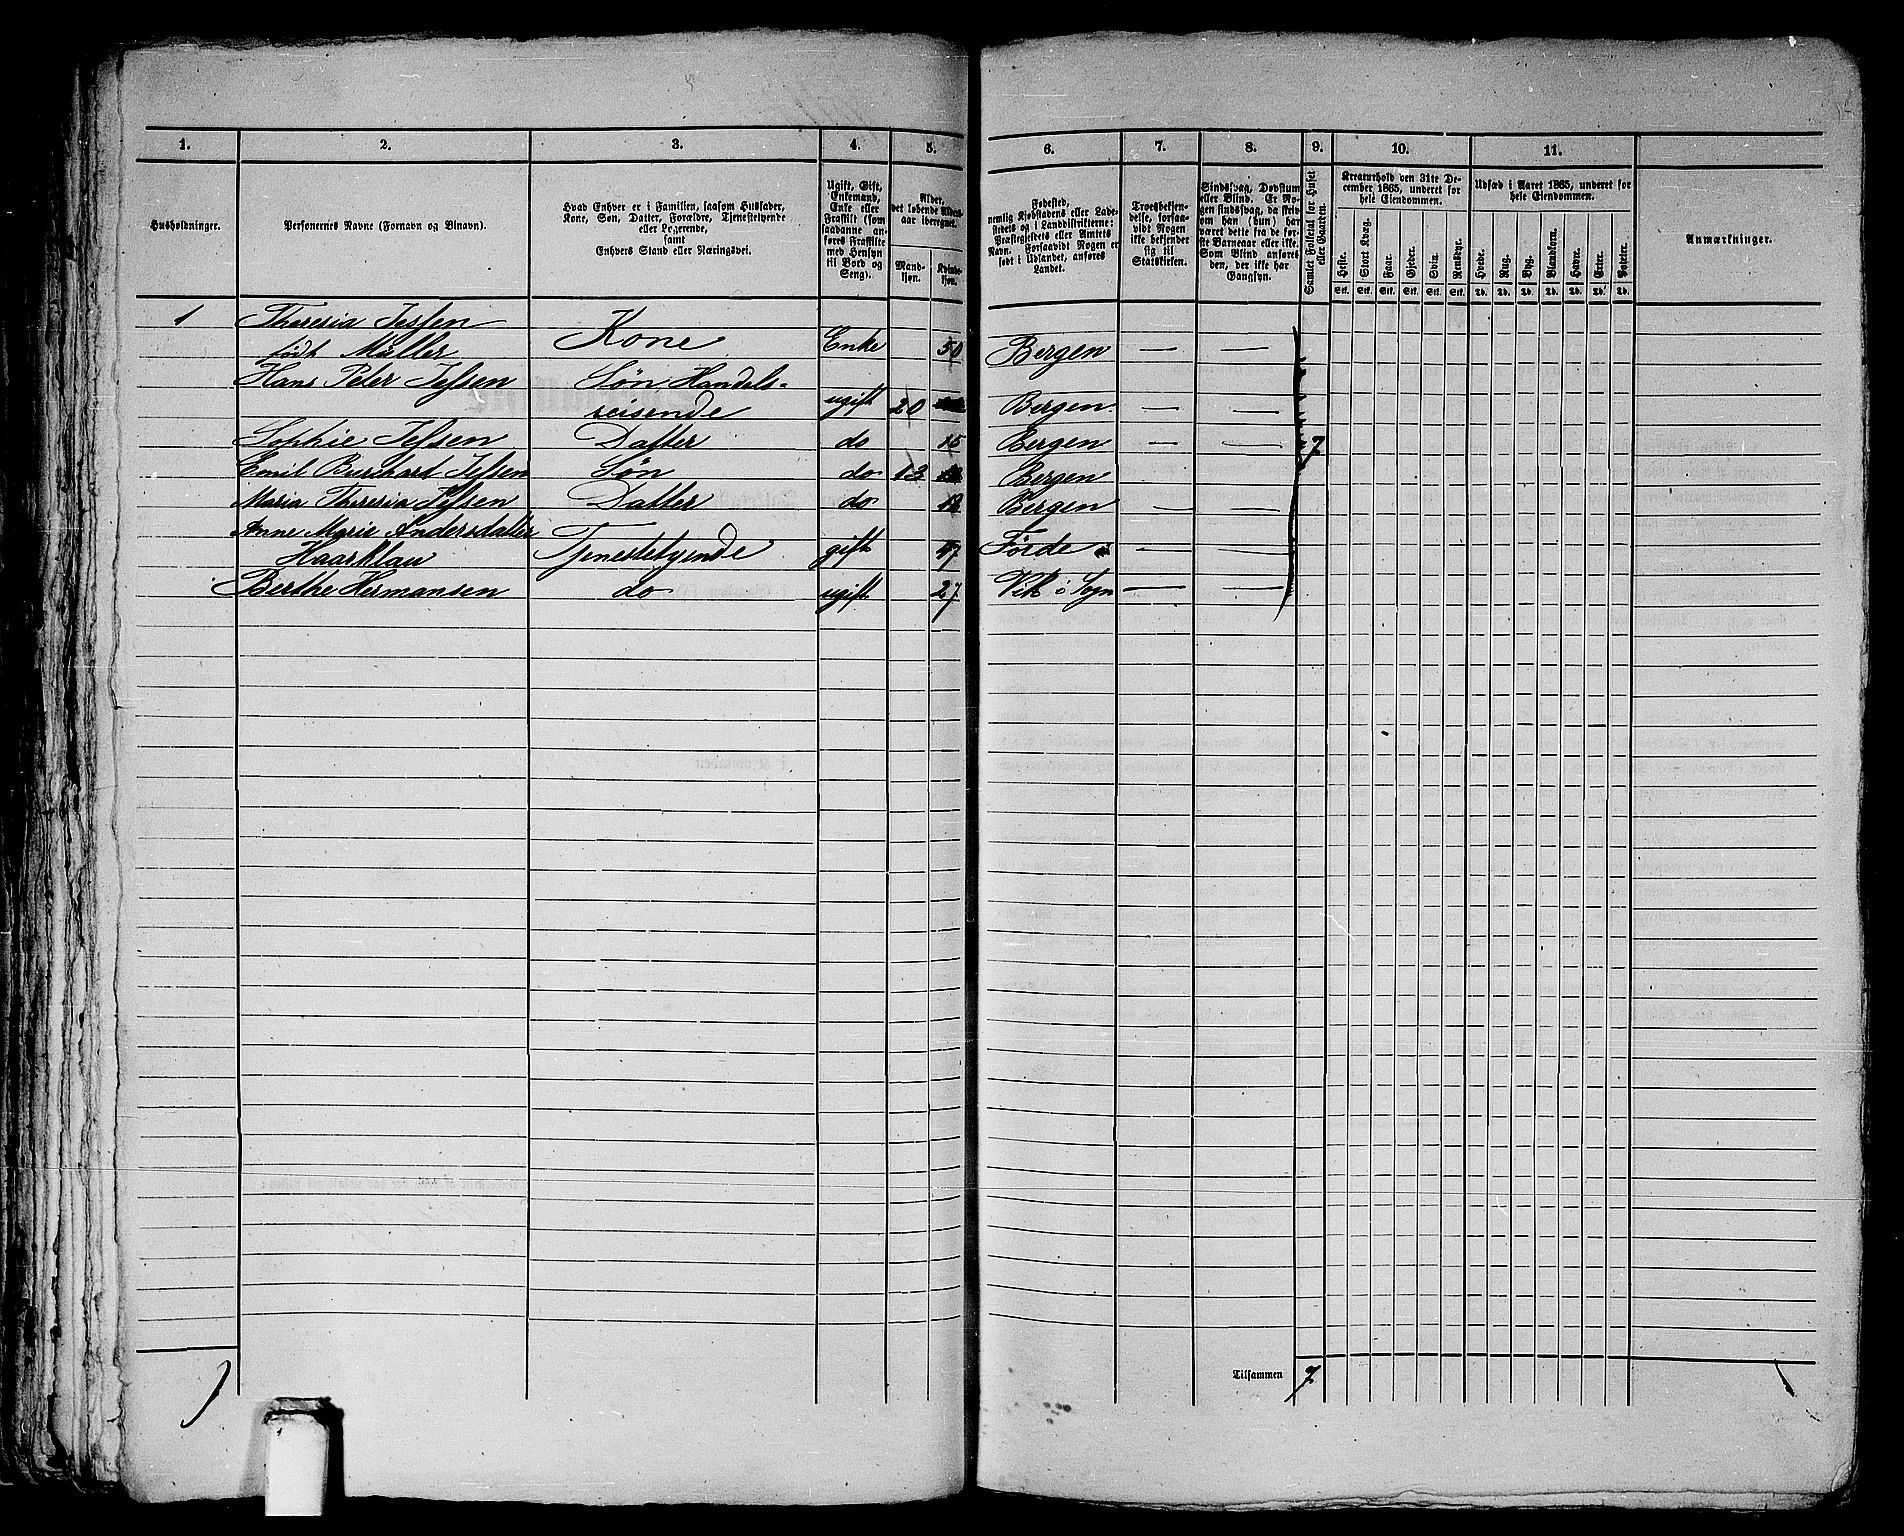 1. 2. 3. 4. 5. 6. 7. 8. 9. 10. 11.
Husholdninger.
Personernes Navne (Fornavn og Binavn).
Hvad Enhver er i Familien, saasom Husfader,
Kone, Søn, Datter, Forældre, Tjenestetyende
eller Logerende,
samt
Enhvers Stand eller Næringsvei.
Ugift, Gift,
Enkemand,
Enke eller
Fraskilt (som
saadanne an-
føres Fraskilte
med Hensyn
til Bord og
Seng).
Alder,
det løbende Alders-
aar iberegnet.
Mand-
kjøn.
Kvinde-
kjøn.
Fødested,
nemlig Kjøbstadens eller Lade-
stedets og i Landdistrikterne:
Præstegjeldets eller Amtets
Navn. Forsaavidt Nogen er
født i Udlandet, anføres
Landet.
Troesbekjen-
delse, forsaa-
vidt Nogen
ikke bekjender
sig til
Statskirken.
Sindssvag, Døvstum
eller Blind. Er No-
gen sindssvag, da skriv
om han (hun) har
været dette fra de før-
ste Barneaar eller ikke.
Som Blind anføres
den, der ikke har
Gangsyn.
Samlet Folketal for Huset
eller Gaarden.
Kreaturhold den 31te De-
cember 1865, underet for
hele Eiendommen.
Heste. Stort Kvæg. Faar. Gjeder. Svin. Rensdyr.
Stk. Stk. Stk. Stk. Stk. Stk.
Udsæd i Aaret 1865, underet for
hele Eiendommen.
Hvede. Rug. Byg. Blandkorn. Havre. Erter. Poteter.
Td. Td. Td. Td. Td. Td. Td.
Anmærkninger.
1 Theresia Jessen
født Müller Kone Enke 50 Bergen — —
Hans Peter Jessen Søn Handels-
reisende ugift 20 Bergen. — —
Sophie Jessen Datter do 15 Bergen — — 7
Emil Burchard Jessen Søn do 13 Bergen — —
Maria Theresia Jessen Datter do Bergen — —
Anne Marie Andersdatter
Haarklau Tjenestetyende gift 47 Førde — —
Berthe Hermansen do ugift 27 Vik i Sogn — —
Tilsammen 7